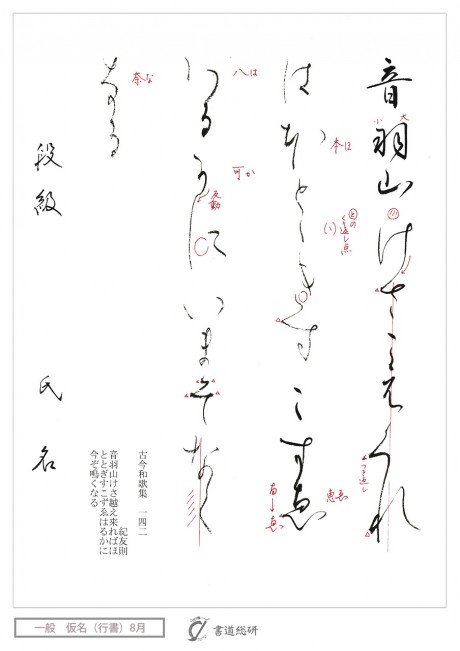 音羽山けさこえくれ
小 大
は本とゝきすこす恵
本ほ
との
くり返し点
恵ゑ
八るかにいまそなく
八は
可か
反動
奈る
奈な
古今和歌集 一四二
紀友則
音羽山けさ越え来ればほ
ととぎすこずゑはるかに
今ぞ鳴くなる
段級 氏名
一般 仮名(行書)8月
書道総研